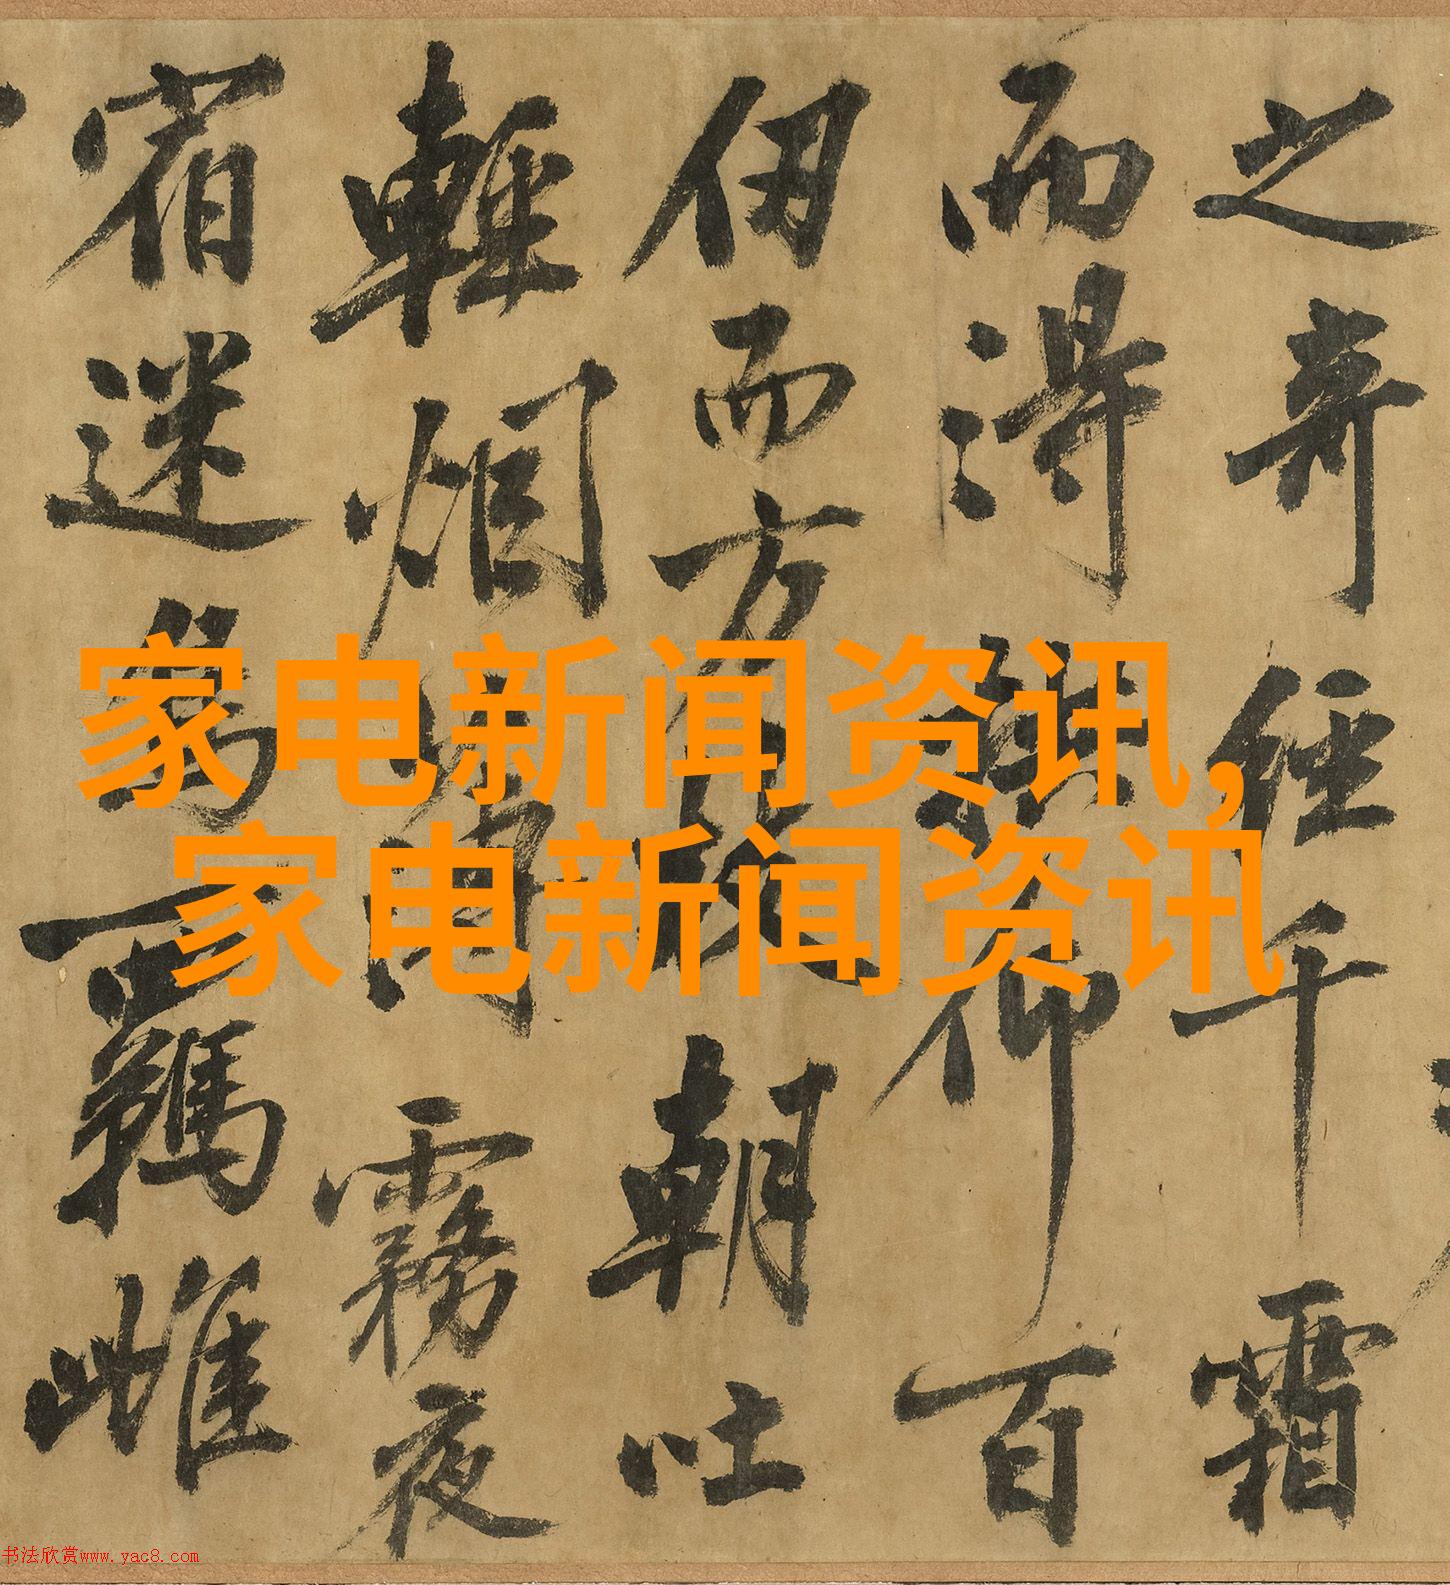 之奇經千霜
而得仰百
仞而方朝吐
輕烟霧夜
宿迷鳥羈雌
家电新闻资讯,
家电新闻资讯
书法欣赏www.yac8.com